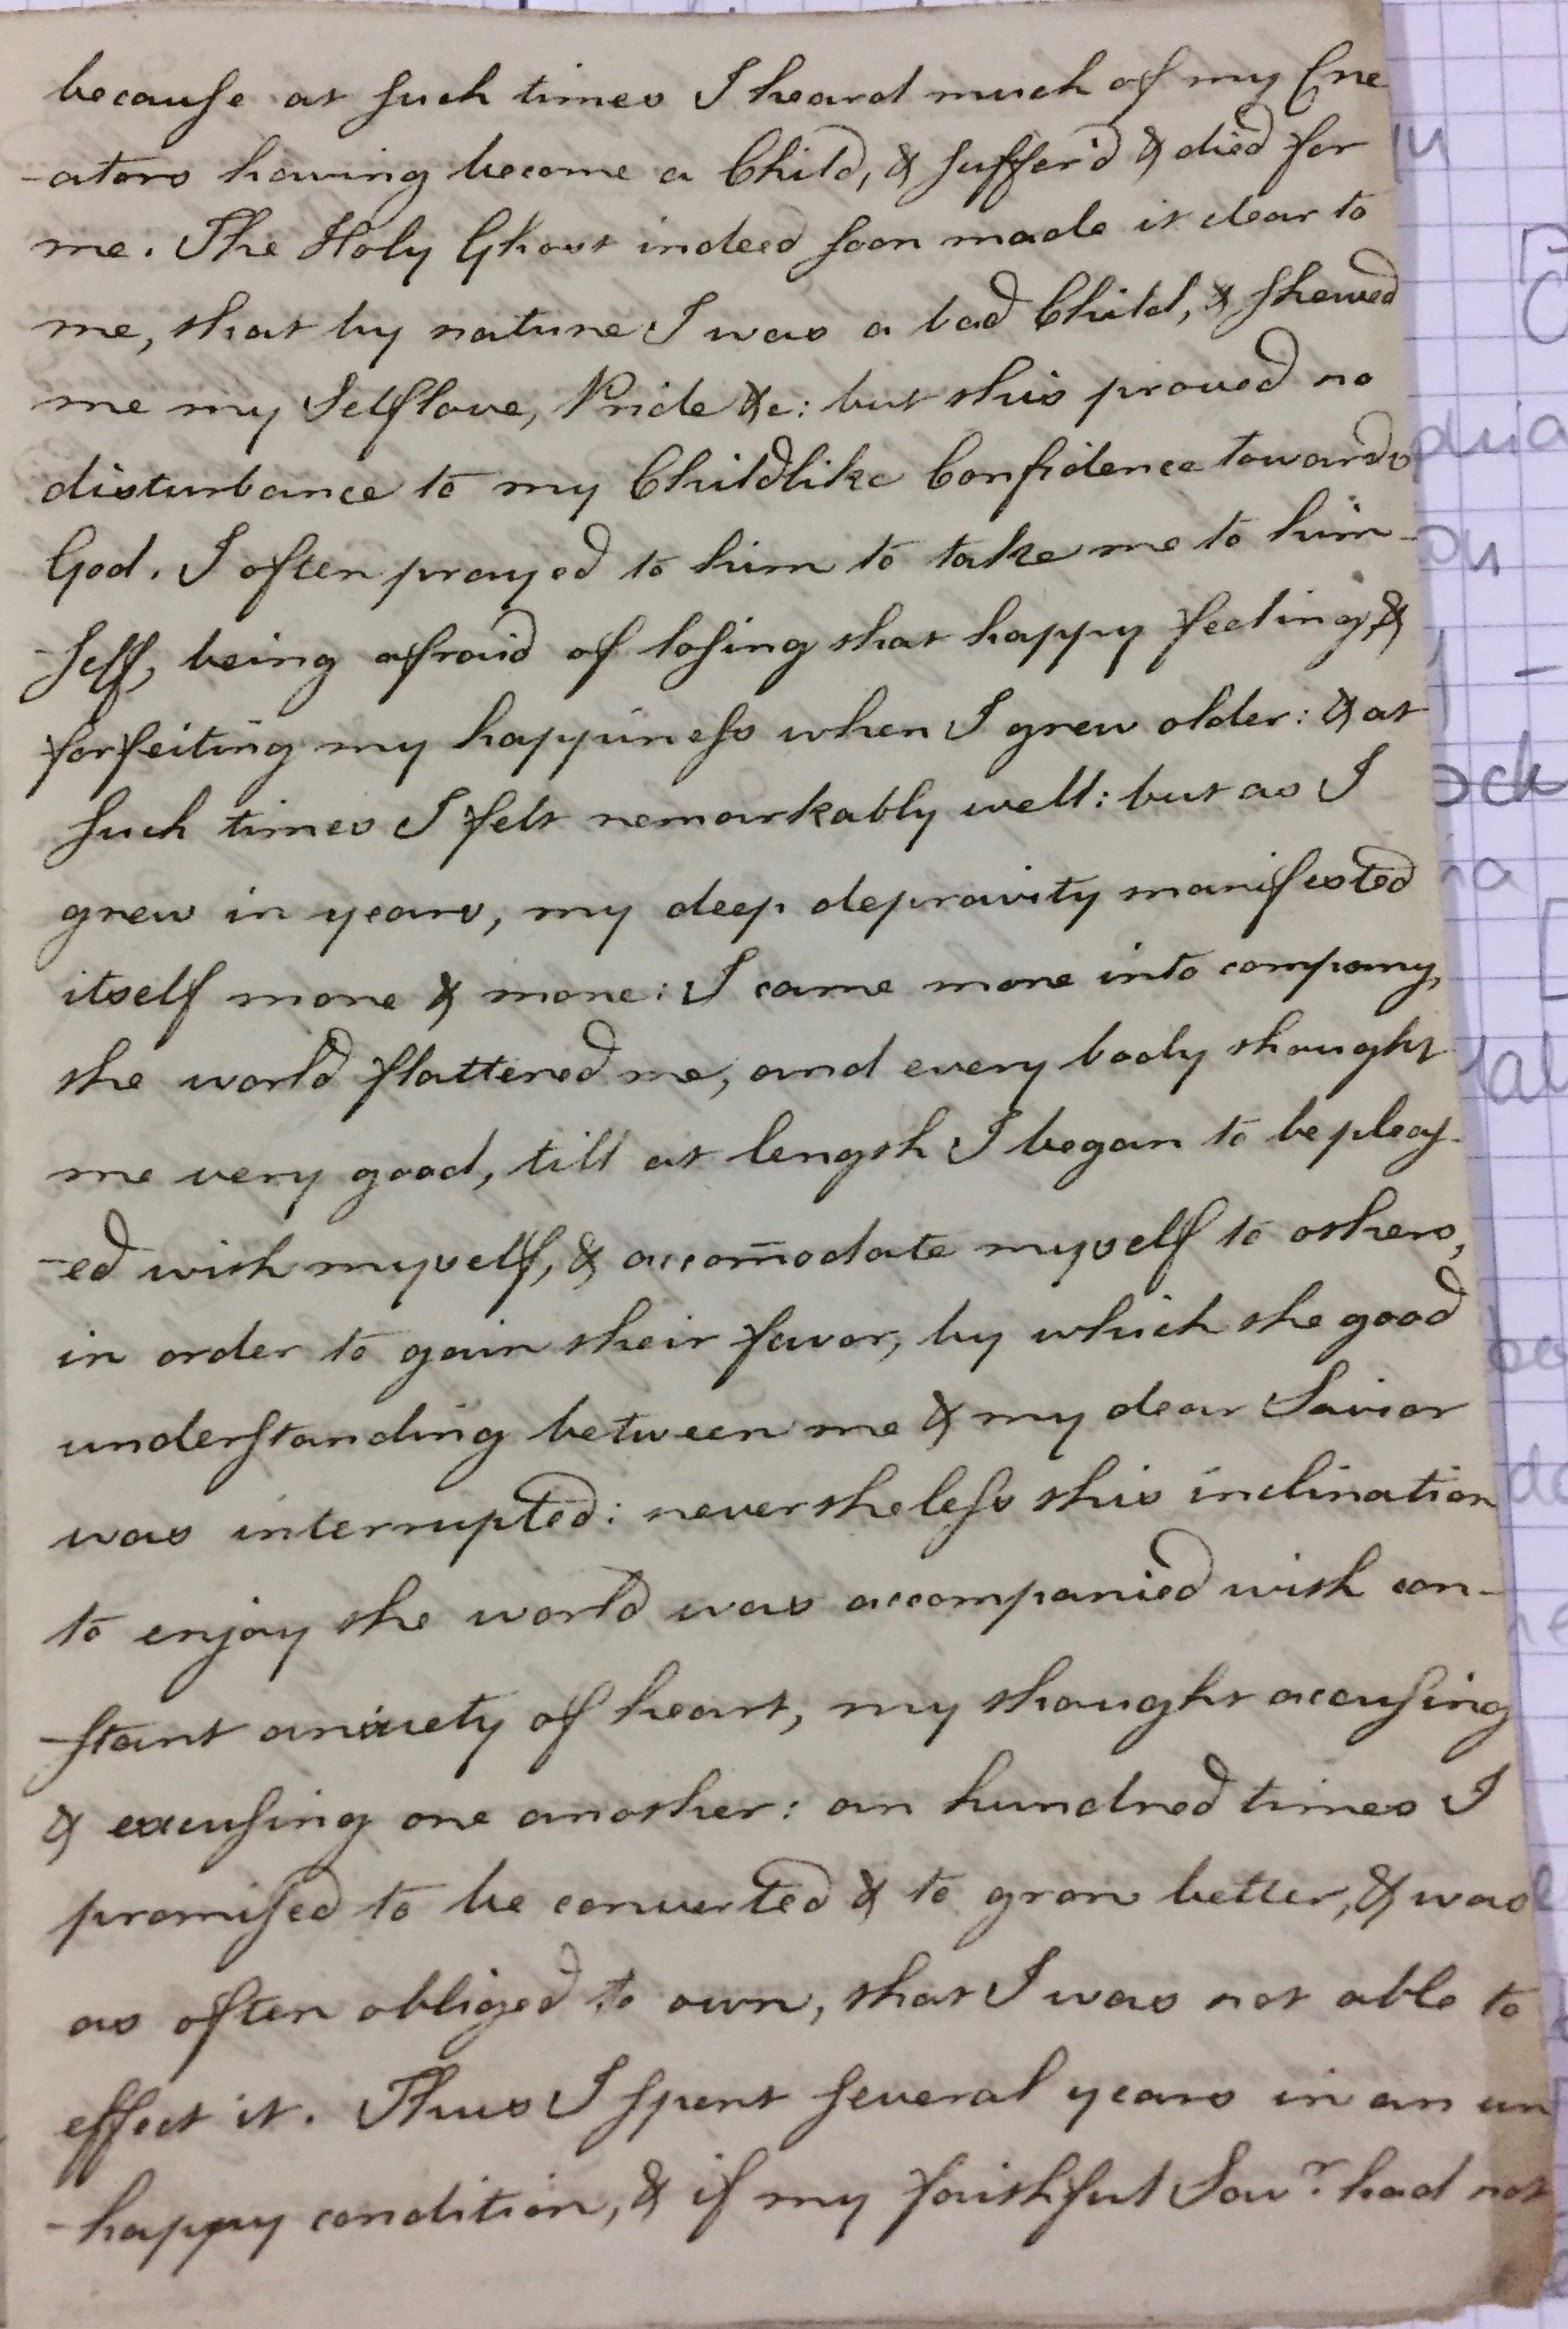 because at such times I heard much of my Cre
-ators having become a Child, & suffer'd & died for
me. The Holy Ghost indeed soon made it clear to
me, that by nature I was a bad Child, & shewed
me my Selflove, Pride &c: but this proved no
disturbance to my Childlike Confidence towards
God. I often prayed to him to take me to him-
-self, being afraid of losing that happy feeling, &
forfeiting my happiness when I grew older: & at
such times I felt remarkably well: but as I
grew in years, my deep depravity manifested
itself more & more: I came more into company,
the world flattered me, and every body thought
me very good, till at length I began to be pleas-
-ed with myself, & accom̄odate myself to others,
in order to gain their favor, by which the good
understanding between me & my dear Savior
was interrupted: nevertheless this inclination
to enjoy the world was accompanied with con-
-stant anxiety of heart, my thought accusing
& excusing one another: an hundred times I
promised to be converted & to grow better, & was
as often obliged to own, that I was not able to
effect it. Thus I spent several years in an un
-happy condition, & if my faithful Savr. had not